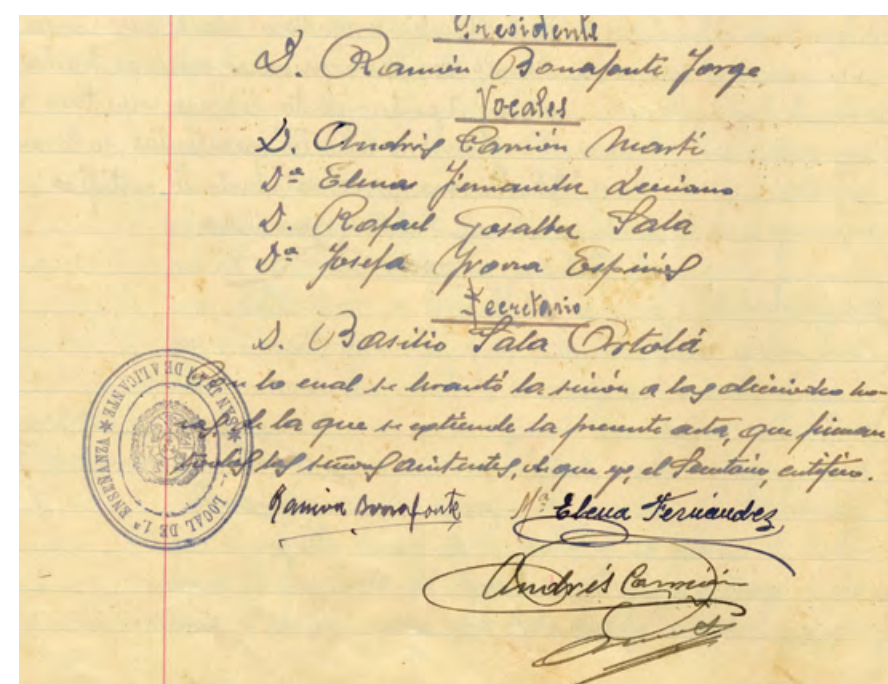 Presidente
D. Ramón Bonafonte Jorge
Vocales
D. Andrés Carrión Martí
Dª Elena Fernandez Leciano
D. Rafael Gosalbez Sala
Dª Josefa Ivorra Espinós
Secretario
D. Basilio Sala Ortolá
Con lo cual se levantó la sesión a las dieciocho ho-
ras, de la que se extiende la presente acta, que firman
todos los señores asistentes, de que yo, el Secretario, certifico.
Ramón Bonafonte Mª Elena Fernández
Andrés Carrión
LOCAL DE 1.ª ENSEÑANZA * SAN JUAN DE ALICANTE *